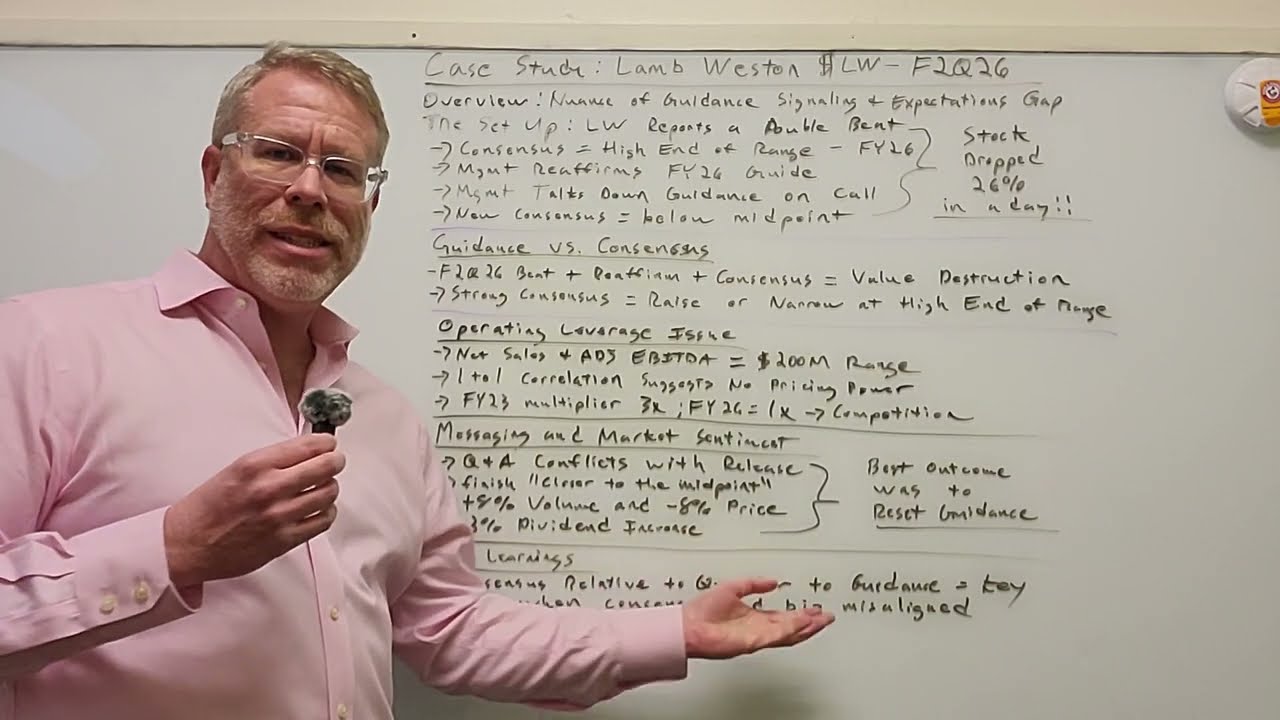 Case Study: Lamb Weston $LW - F2Q26
Overview: Nuance of Guidance Signaling + Expectations Gap
The Set Up: LW Reports a Double Beat
→ Consensus = High End of Range - FY26
→ Mgmt Reaffirms FY26 Guide
→ Mgmt Talks Down Guidance on Call
→ New Consensus = below midpoint
Stock
Dropped
26%
in a day!!
Guidance vs. Consensus
- F2Q26 Beat + Reaffirm + Consensus = Value Destruction
→ Strong Consensus = Raise or Narrow at High End of Range
Operating Leverage Issue
→ Net Sales + ADJ EBITDA = $200M Range
→ 1 to 1 Correlation Suggests No Pricing Power
→ FY23 multiplier 3x; FY26 = 1x → Competition
Messaging and Market Sentiment
→ Q+A Conflicts with Release
→ finish "closer to the midpoint"
+8% Volume and -8% Price
3% Dividend Increase
Best Outcome
was to
Reset Guidance
Learnings
Relative to to Guidance = key
when misaligned